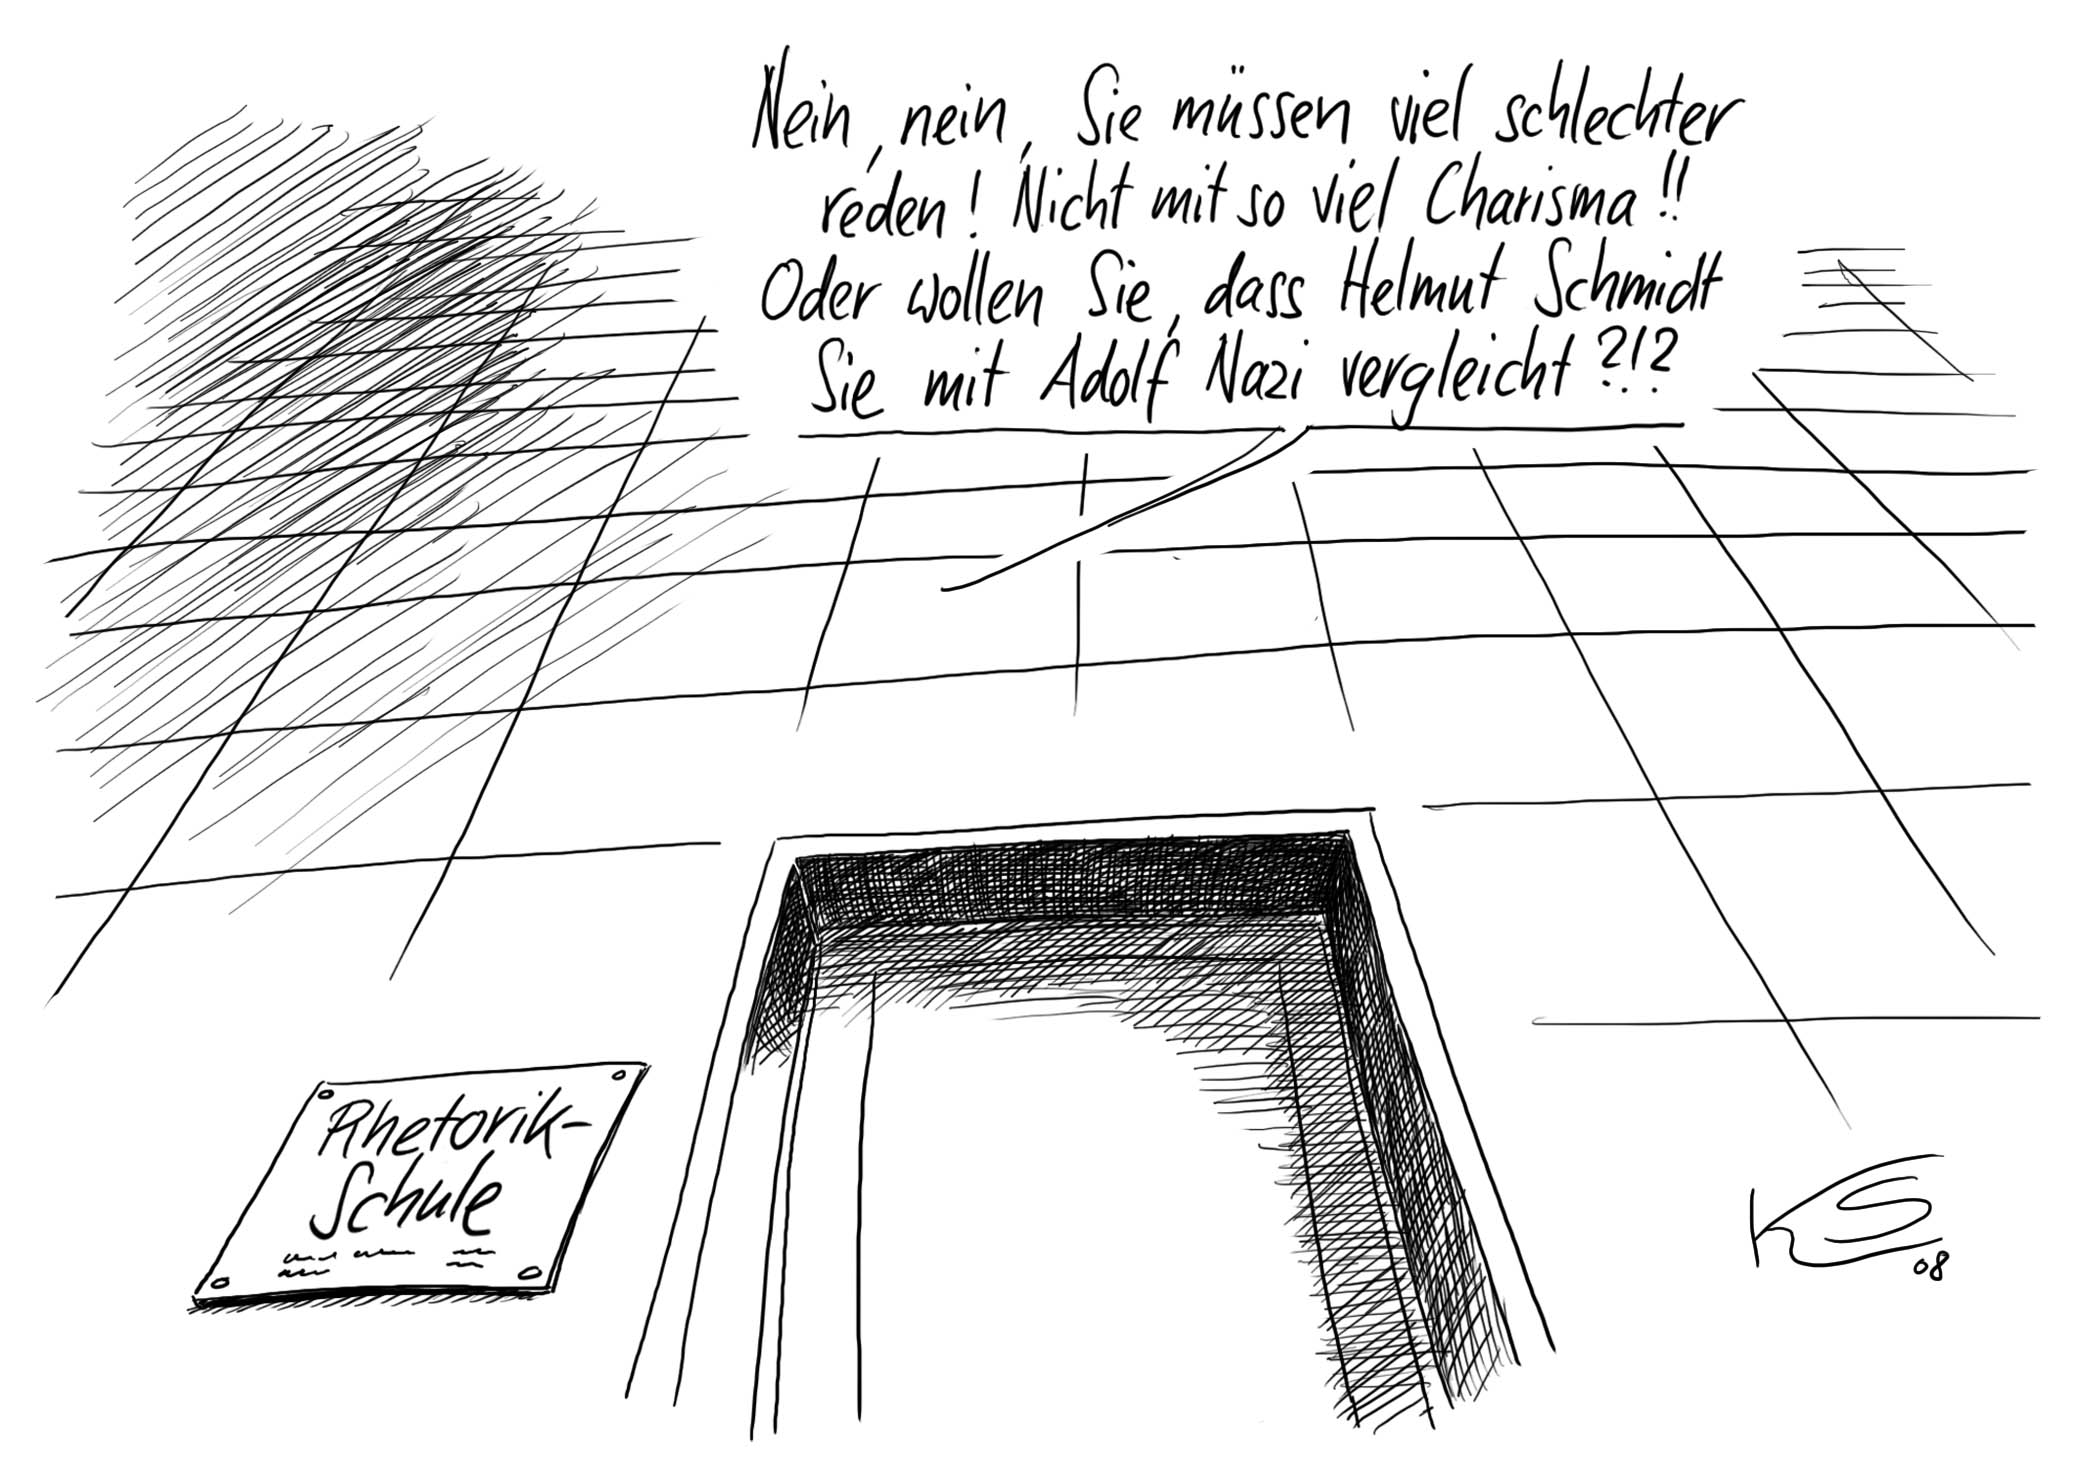 Nein, nein, Sie müssen viel schlechter
reden! Nicht mit so viel Charisma!!
Oder wollen Sie, dass Helmut Schmidt
Sie mit Adolf Nazi vergleicht?!?
Rhetorik-
Schule
KS
08